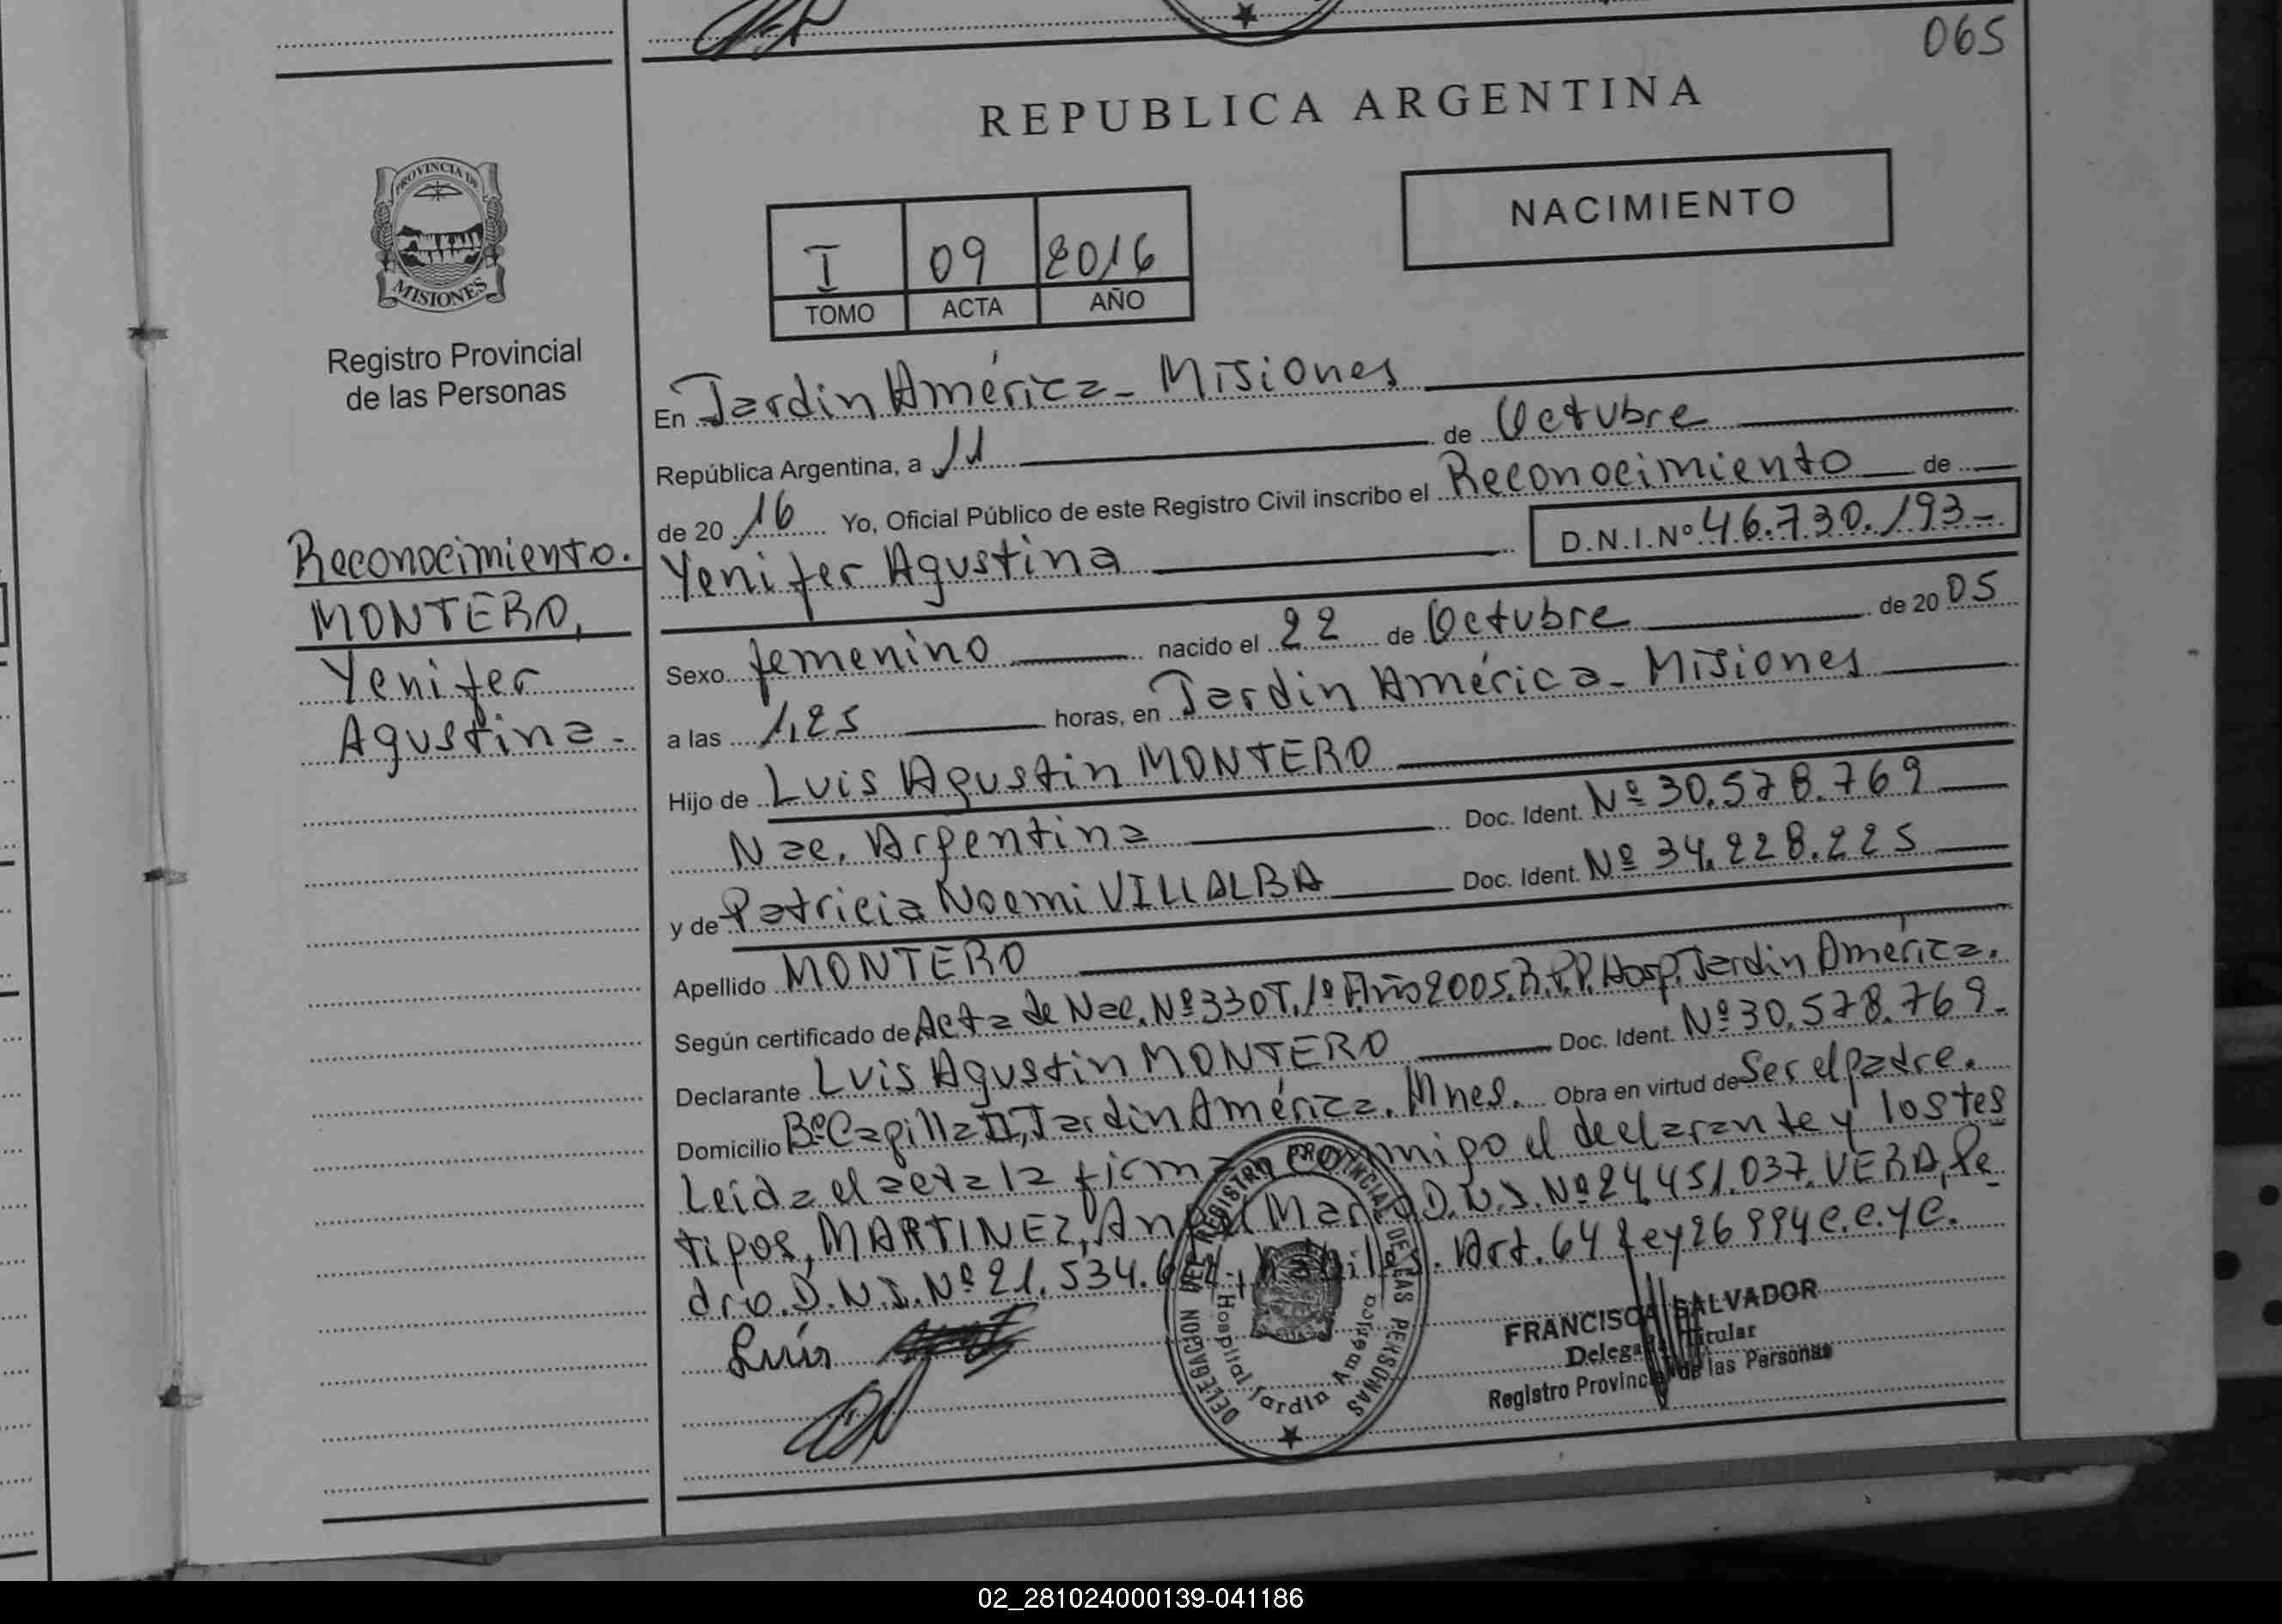 065
REPUBLICA ARGENTINA
PROVINCIA DE
MISIONES
Registro Provincial
de las Personas
NACIMIENTO
I 09 2016
TOMO ACTA AÑO
Reconocimiento.
MONTERO,
Yenifer
Agustina.-
En Jardin América - Misiones
República Argentina, a 11 de Octubre
de 20 16 Yo, Oficial Público de este Registro Civil inscribo el Reconocimiento de
Yenifer Agustina D.N.I.Nº 46.730.193-
Sexo femenino nacido el 22 de Octubre de 20 05
a las 1,25 horas, en Jardin América - Misiones
Hijo de Luis Agustin MONTERO
Nac. Argentina Doc. Ident. Nº 30.578.769
y de Patricia Noemi VILLALBA Doc. Ident. Nº 34.228.225
Apellido MONTERO
Según certificado de Acta de Nac. Nº 330 T. 1º Año 2005. R.P.P. Hosp. Jardin América.
Declarante Luis Agustin MONTERO Doc. Ident. Nº 30.578.769-
Domicilio Bº Capilla II, Jardin América. Mnes. Obra en virtud de Ser el padre.
Leida el acta la firman conmigo el declarante y los tes
tigos, MARTINEZ, Mario D.N.I. Nº 24.451.037. VERA, Pe
dro. D.N.I. Nº 21.534. habiles. Art. 64 Ley 26994 C.C.yC.
Luis
DELEGACION DEL REGISTRO PROVINCIAL DE LAS PERSONAS
Hospital Jardin América
FRANCISCA SALVADOR
Delegada Titular
Registro Provincial de las Personas
02_281024000139-041186